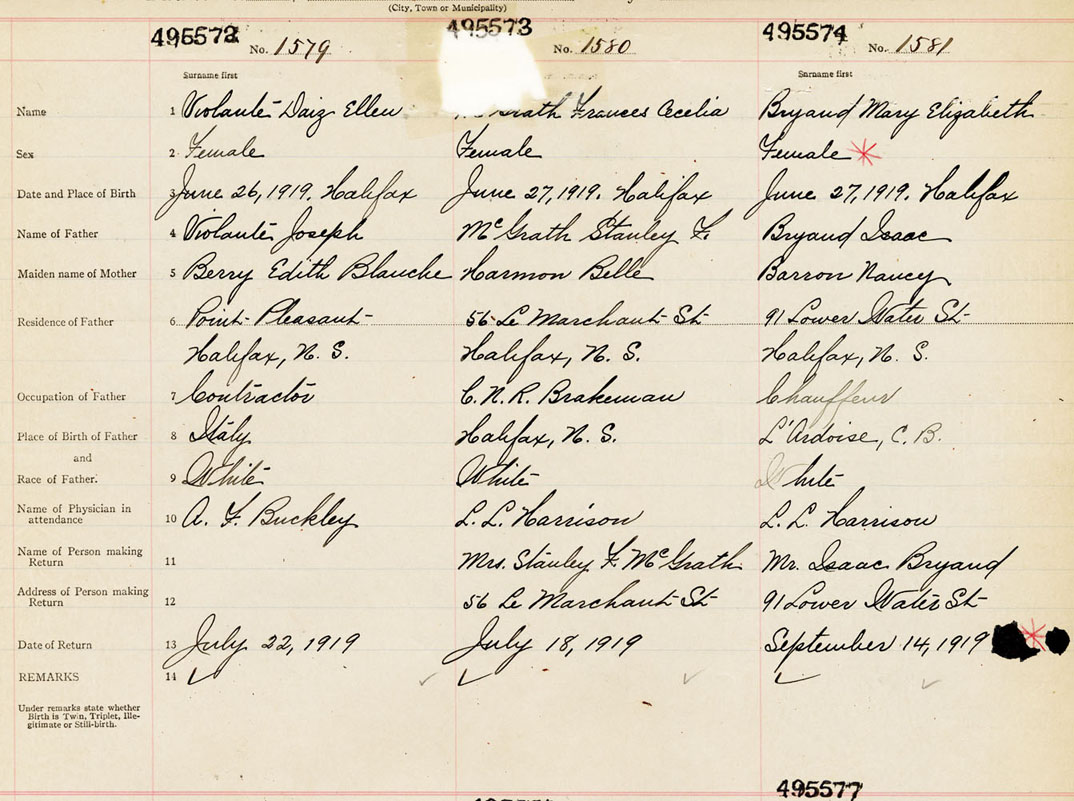 (City, Town or Municipality)
495572 No. 1579 495573 No. 1580 495574 No. 1581
Surname first Surname first
Name 1 Violante Daiz Ellen McGrath Frances Cecelia Bryand Mary Elizabeth
Sex 2 Female Female Female
Date and Place of Birth 3 June 26, 1919. Halifax June 27, 1919. Halifax June 27, 1919. Halifax
Name of Father 4 Violante Joseph McGrath Stanley F. Bryand Isaac
Maiden name of Mother 5 Berry Edith Blanche Harmon Belle Barron Nancy
Residence of Father 6 Point Pleasant 56 Le Marchant St 91 Lower Water St
Halifax, N. S. Halifax, N. S. Halifax, N. S.
Occupation of Father 7 Contractor C.N.R. Brakeman Chauffeur
Place of Birth of Father 8 Italy Halifax, N. S. L'Ardoise, C. B.
and
Race of Father. 9 White White White
Name of Physician in attendance 10 A. F. Buckley L. L. Harrison L. L. Harrison
Name of Person making Return 11 Mrs. Stanley F. McGrath Mr. Isaac Bryand
Address of Person making Return 12 56 Le Marchant St 91 Lower Water St
Date of Return 13 July 22, 1919 July 18, 1919 September 14, 1919
REMARKS 14
Under remarks state whether
Birth is Twin, Triplet, Ille-
gitimate or Still-birth.
495577